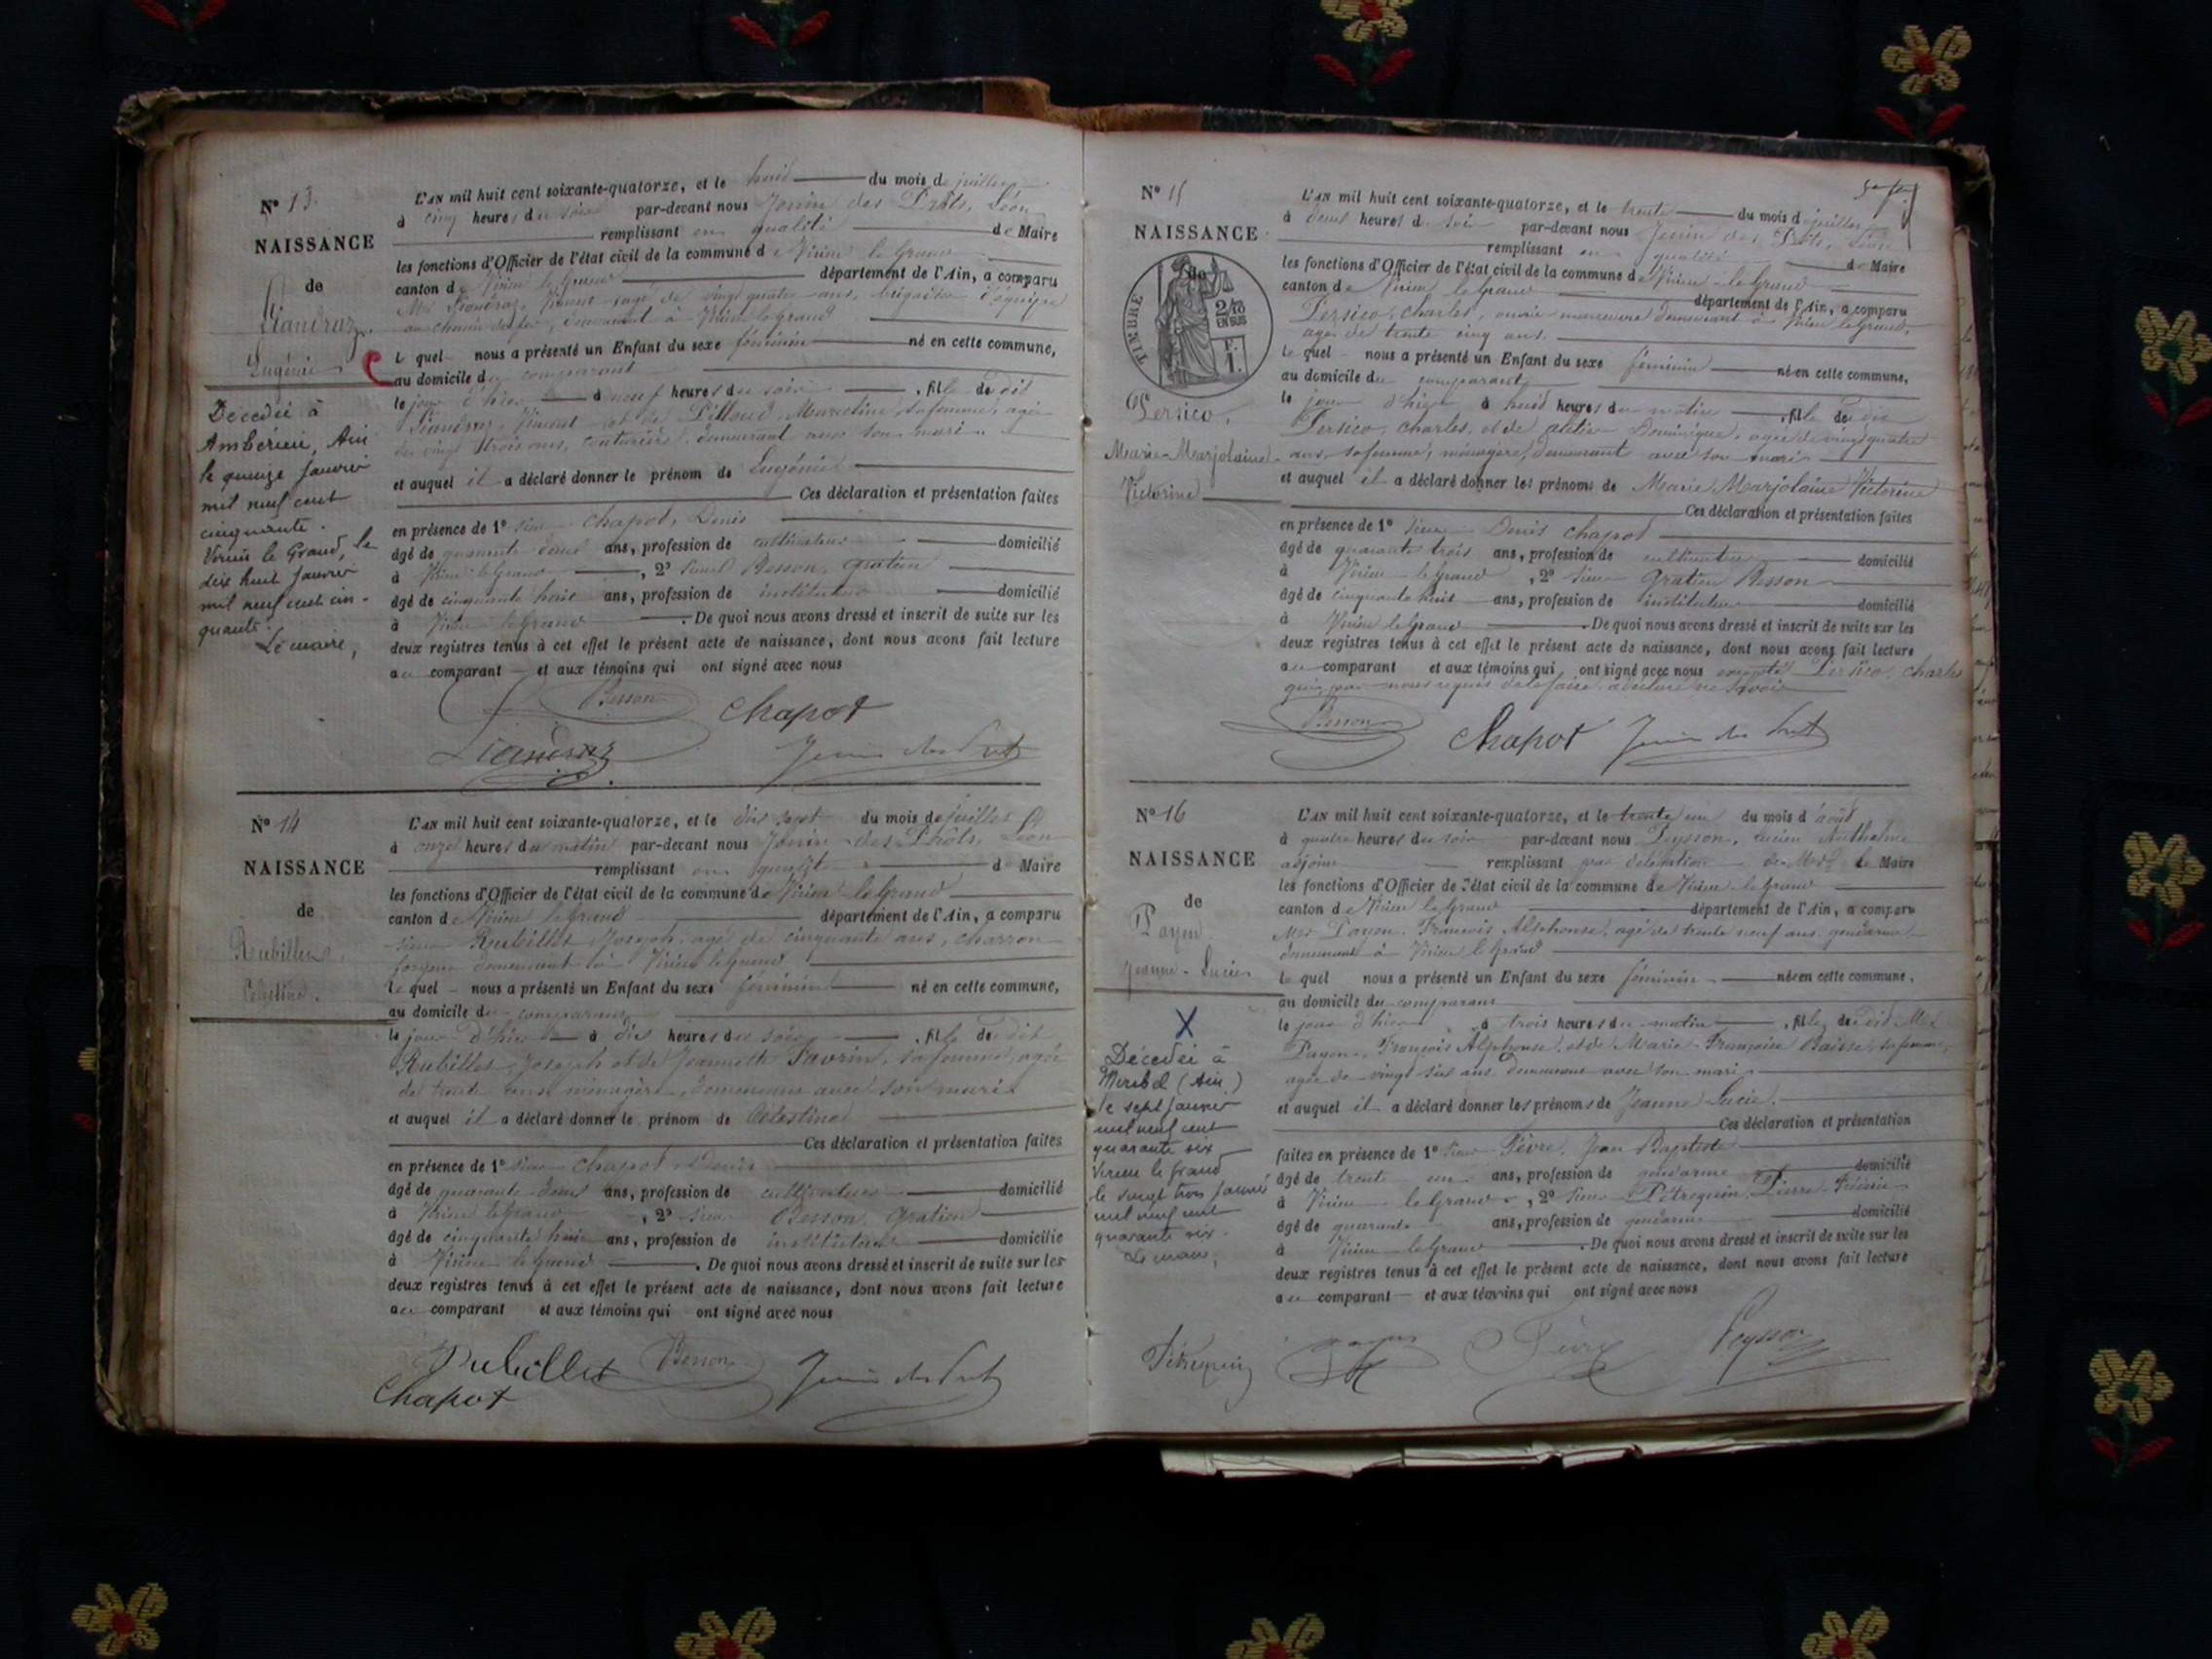 N° 13.
NAISSANCE
de
Liandraz
Eugénie
Décédée à
Ambérieu, Ain
le quinze janvier
mil neuf cent
cinquante.
Virieu le Grand, le
dix huit janvier
mil neuf cent cin-
quante.
Le maire,
L'AN mil huit cent soixante-quatorze, et le huit du mois de juillet
à cinq heures du soir par-devant nous Jenin des Prôts, Léon
remplissant en qualité de Maire
les fonctions d'Officier de l'état civil de la commune de Virieu le Grand
canton de Virieu le Grand département de l'Ain, a comparu
Mr Liandraz, âgé de vingt quatre ans, brigadier d'équipe
au chemin de fer, demeurant à Virieu le grand
le quel nous a présenté un Enfant du sexe féminin né en cette commune,
au domicile du comparant
le jour d'hier à neuf heures du soir, fille du dit
Liandraz, et de Marceline, sa femme, âgée
de vingt trois ans, couturière, demeurant avec son mari
et auquel il a déclaré donner le prénom de Eugénie
Ces déclaration et présentation faites
en présence de 1° sieur Chapot, Denis
âgé de quarante deux ans, profession de cultivateur domicilié
à Virieu le grand, 2° sieur Besson, Gratien
âgé de cinquante huit ans, profession de instituteur domicilié
à Virieu le Grand. De quoi nous avons dressé et inscrit de suite sur les
deux registres tenus à cet effet le présent acte de naissance, dont nous avons fait lecture
au comparant et aux témoins qui ont signé avec nous
Besson Chapot
Liandraz Jenin des Prôts
N° 14
NAISSANCE
de
Rubillet
Célestine.
L'AN mil huit cent soixante-quatorze, et le dix sept du mois de juillet
à onze heures du matin par-devant nous Jenin des Prôts, Léon
remplissant en qualité de Maire
les fonctions d'Officier de l'état civil de la commune de Virieu le Grand
canton de Virieu le Grand département de l'Ain, a comparu
sieur Rubillet Joseph, âgé de cinquante ans, charron
forgeur demeurant à Virieu le grand
le quel nous a présenté un Enfant du sexe féminin né en cette commune,
au domicile du comparant
le jour d'hier à dix heures du soir, fille du dit
Rubillet Joseph et de Jeannette Savrin, sa femme, âgée
de trente ans, ménagère, demeurant avec son mari
et auquel il a déclaré donner le prénom de Célestine
Ces déclaration et présentation faites
en présence de 1° sieur Chapot, Denis
âgé de quarante deux ans, profession de cultivateur domicilié
à Virieu le grand, 2° sieur Besson, Gratien
âgé de cinquante huit ans, profession de instituteur domicilié
à Virieu le grand. De quoi nous avons dressé et inscrit de suite sur les
deux registres tenus à cet effet le présent acte de naissance, dont nous avons fait lecture
au comparant et aux témoins qui ont signé avec nous
Rubillet Besson Jenin des Prôts
Chapot
N° 15
NAISSANCE
de
TIMBRE
2/10
EN SUS
F.
1.
Persico,
Marie-Marjolaine
Victorine
L'AN mil huit cent soixante-quatorze, et le trente du mois de juillet
à deux heures du soir par-devant nous Jenin des Prôts, Léon
remplissant en qualité de Maire
les fonctions d'Officier de l'état civil de la commune de Virieu le Grand
canton de Virieu le Grand département de l'Ain, a comparu
Persico, Charles, ouvrier manœuvre demeurant à Virieu le Grand,
âgé de trente cinq ans.
le quel nous a présenté un Enfant du sexe féminin né en cette commune,
au domicile du comparant
le jour d'hier à huit heures du matin, fille du dit
Persico, Charles, et de Dominique, âgée de vingt quatre
ans, sa femme, ménagère, demeurant avec son mari
et auquel il a déclaré donner les prénoms de Marie Marjolaine Victorine
Ces déclaration et présentation faites
en présence de 1° sieur Denis Chapot
âgé de quarante trois ans, profession de cultivateur domicilié
à Virieu le grand, 2° sieur Gratien Besson
âgé de cinquante huit ans, profession de instituteur domicilié
à Virieu le Grand. De quoi nous avons dressé et inscrit de suite sur les
deux registres tenus à cet effet le présent acte de naissance, dont nous avons fait lecture
au comparant et aux témoins qui ont signé avec nous excepté Persico, Charles
qui, par nous requis de le faire, a déclaré ne savoir
Besson Chapot Jenin des Prôts
N° 16
NAISSANCE
de
Payen
Jeanne-Lucie
X
Décédée à
Miribel (Ain)
le sept janvier
mil neuf cent
quarante six
Virieu le Grand
le vingt trois janvier
mil neuf cent
quarante six.
Le maire,
L'AN mil huit cent soixante-quatorze, et le trente un du mois d'août
à quatre heures du soir par-devant nous Peysson, Lucien Anthelme
adjoint remplissant par délégation de Mr le Maire
les fonctions d'Officier de l'état civil de la commune de Virieu le Grand
canton de Virieu le Grand département de l'Ain, a comparu
Mr Payen, François Alphonse, âgé de trente neuf ans, gendarme
demeurant à Virieu le Grand
le quel nous a présenté un Enfant du sexe féminin né en cette commune,
au domicile du comparant
le jour d'hier à trois heures du matin, fille du dit Mr
Payen, François Alphonse, et de Marie Françoise Baisse, sa femme,
âgée de vingt six ans demeurant avec son mari
et auquel il a déclaré donner les prénoms de Jeanne Lucie.
Ces déclaration et présentation
faites en présence de 1° sieur Fèvre, Jean Baptiste
âgé de trente un ans, profession de gendarme domicilié
à Virieu le Grand, 2° sieur Pétrequin, Pierre
âgé de quarante ans, profession de gendarme domicilié
à Virieu le Grand. De quoi nous avons dressé et inscrit de suite sur les
deux registres tenus à cet effet le présent acte de naissance, dont nous avons fait lecture
au comparant et aux témoins qui ont signé avec nous
Pétrequin Payen Fèvre Peysson